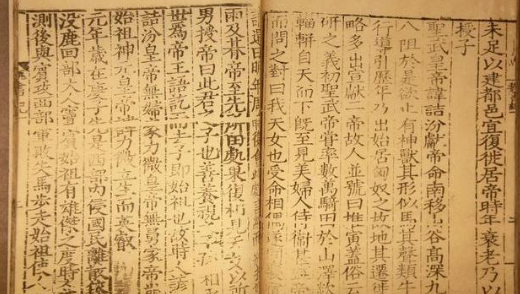 未足以建都邑宜復徙居帝時年衰老乃以
授子
聖武皇帝諱詰汾獻帝命南移山谷高深九
八阻於是欲止有神獸其形似馬其聲類牛
行導引歷年乃出始居匈奴之故地其遷徙
略多出宣獻帝故人並號曰推寅蓋俗云
研之義初聖武帝嘗率數萬騎田於山澤欻
輜軿自天而下既至見美婦人侍衛甚盛帝
而問之對曰我天女也受命相偶
請還曰明年周時復會此處
雨及期帝至先所田處果復相見天女以所
男授帝曰此君之子也善養視之子
世為帝王語訖而去子即始祖也故時人諺
詰汾皇帝無婦家力微皇帝無舅家帝崩
始祖神元皇帝諱力微立生而英叡
元年歲在庚子先是西部內侵國民離散
沒鹿回部大人竇賓始祖有雄傑之度時人
測後與賓攻西部軍敗失馬步走始祖使人